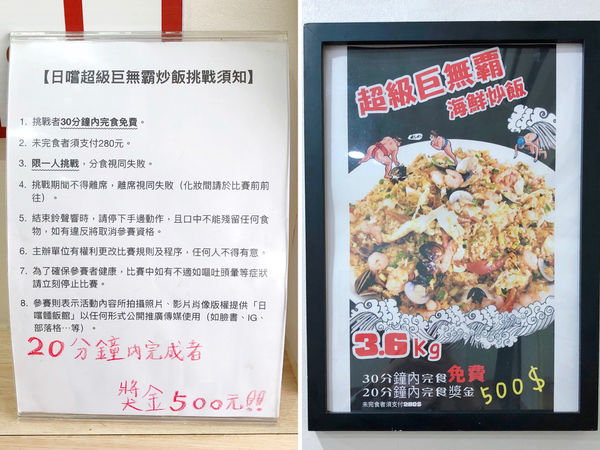 【日嚐超級巨無霸炒飯挑戰須知】
1. 挑戰者30分鐘內完食免費。
2. 未完食者須支付280元。
3. 限一人挑戰，分食視同失敗。
4. 挑戰期間不得離席，離席視同失敗（化妝間請於比賽前前
往）。
5. 結束鈴聲響時，請停下手邊動作，且口中不能殘留任何食
物，如有違反將取消參賽資格。
6. 主辦單位有權利更改比賽規則及程序，任何人不得有意。
7. 為了確保參賽者健康，比賽中如有不適如嘔吐頭暈等症狀
請立刻停止比賽。
8. 參賽則表示活動內容所拍攝照片、影片肖像版權提供「日
嚐麵飯館」以任何形式公開推廣傳媒使用（如臉書、IG、
部落格…等）。
20分鐘內完成者
獎金500元!!
超級巨無霸
海鮮炒飯
3.6Kg
30分鐘內完食免費
20分鐘內完食獎金500$
未完食者須支付280$